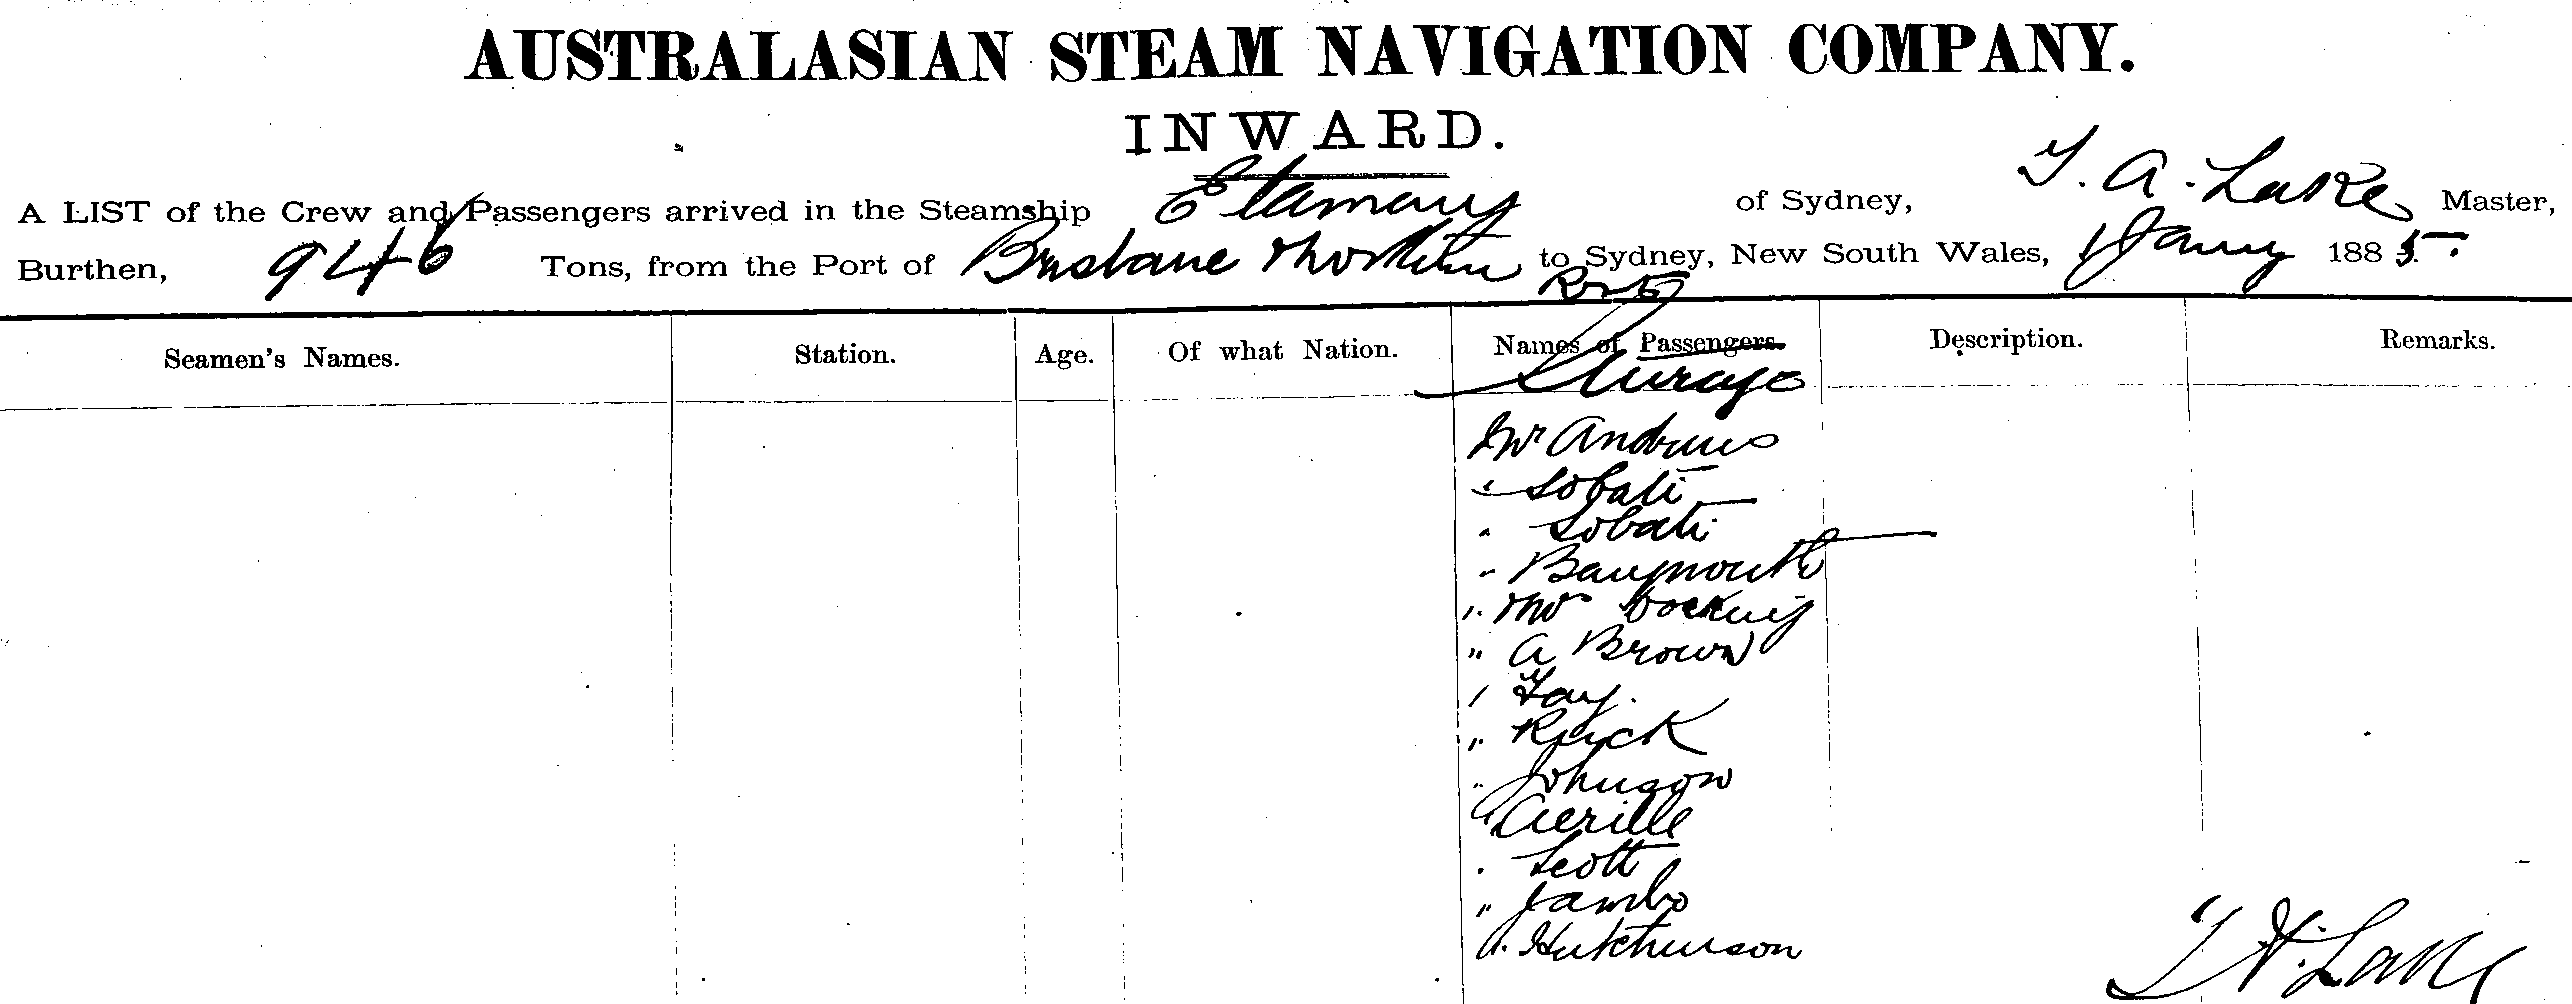 AUSTRALASIAN STEAM NAVIGATION COMPANY.
INWARD.
A LIST of the Crew and Passengers arrived in the Steamship Elamang of Sydney, T. A. Lake Master,
Burthen, 946 Tons, from the Port of Brisbane & Northern Ports to Sydney, New South Wales, 1 Jany 1885.
Seamen's Names. Station. Age. Of what Nation. Names of Passengers. Description. Remarks.
Steerage
Mr Andrews
" Sobati
" Sobati
" Baumouth
" Mr Cocking
" A Brown
" Fay.
" Johnson
" Scott
" Jambo
" Hutchinson
T. A. Lake